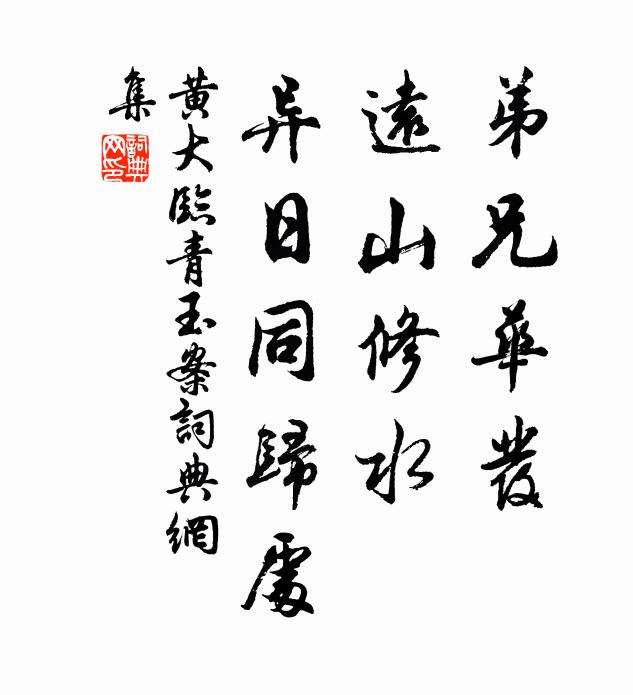 弟兄華發
遠山修水
异日同歸處
黄大臨青玉案詞典網
集
詞典
网印